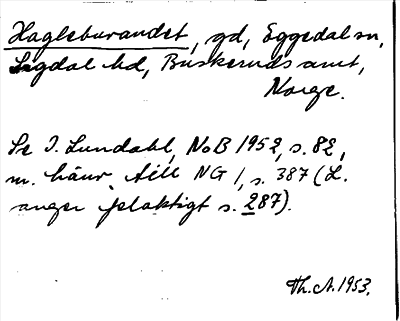 Haglebuvandet, gd, Eggedal sn,
Sigdal hd, Buskeruds amt,
Norge.
Se I. Lundahl, NoB 1952, s. 82,
m. hänv. till NG 1, s. 387 (L.
anger felaktigt s. 287).
Th. A. 1953.